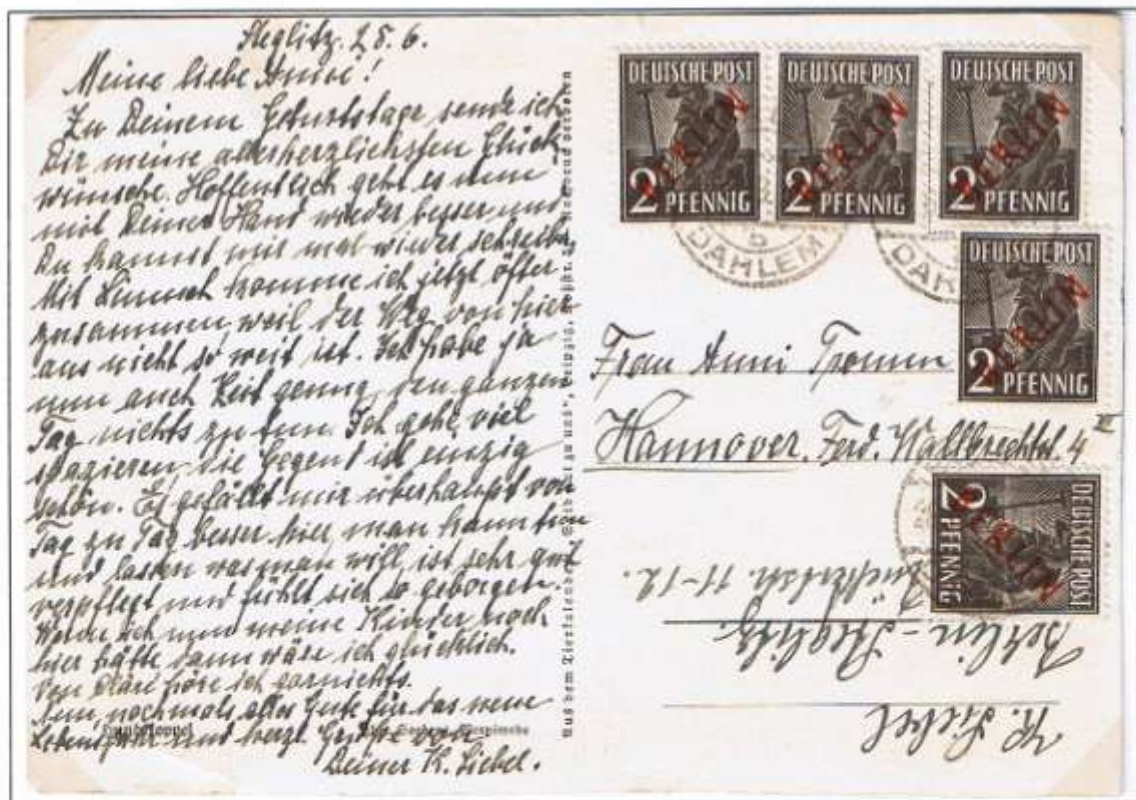 Steglitz. 28.6.
Meine liebe Anni!
Zu Deinem Geburtstage sende ich
Dir meine allerherzlichsten Glück-
wünsche. Hoffentlich geht es nun
mit Deiner Hand wieder besser und
Du kannst mir mal wieder schreiben.
Mit komme ich jetzt öfter
zusammen, weil der Weg von hier
aus nicht so weit ist. Ich habe ja
nun auch Zeit genug, den ganzen
Tag nichts zu tun. Ich gehe viel
spazieren, die Gegend ist einzig
schön. Es gefällt mir überhaupt von
Tag zu Tag besser hier, man kann tun
und lassen was man will, ist sehr gut
verpflegt und fühlt sich so geborgen.
Wenn ich nun meine Kinder noch
hier hätte, dann wäre ich glücklich.
Von höre ich garnichts.
Nun nochmals alles Gute für das neue
Lebensjahr und herzl. Grüße von
Deiner K. Siebel.
Aus dem Tierkalender
DEUTSCHE POST
2 PFENNIG
BERLIN
DEUTSCHE POST
2 PFENNIG
BERLIN
DEUTSCHE POST
2 PFENNIG
BERLIN
5
DAHLEM
DAH
DEUTSCHE POST
2 PFENNIG
BERLIN
Frau Anni
Hannover. Ferd. Wallbrechtst. 4 III
DEUTSCHE POST
2 PFENNIG
BERLIN
K. Siebel
Berlin-Steglitz.
11-12.